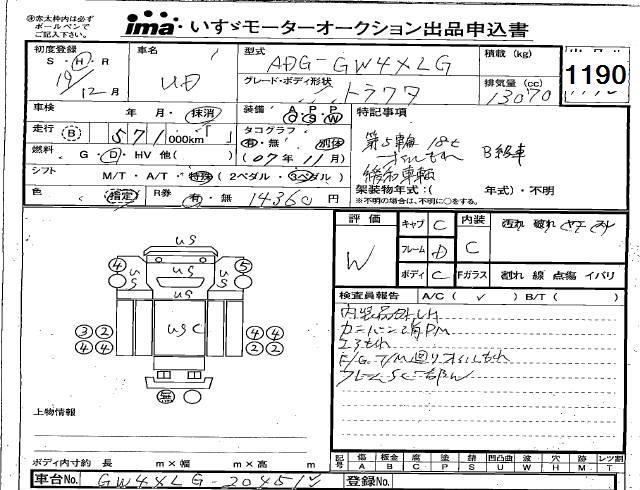 ※赤太枠内は必ず
ボールペンで
ご記入下さい。
ima いすゞモーターオークション出品申込書
初度登録
S・H・R
19/12月
車名
UD
型式
ADG-GW4XLG
積載 (kg)
グレード・ボディ形状
トラクタ
排気量 (cc)
13070
1190
車検
年 月・抹消
装備
A P P
C S W
特記事項
第5輪 18t
オイルもれ
B級車
緩和車輌
走行 (B) 571 000km
タコグラフ
有・無 別体
(07年11月)
燃料
G・D・HV 他( )
シフト
M/T・A/T・特殊 (2ペダル・3ペダル)
架装物年式:( 年式)・不明
※不明の場合は、不明に○をする。
色
指定
R券
有・無 14360円
評価
W
キャブ C
フレーム D
ボディ C
内装 C
汚れ 破れ ヤケ スレ
Fガラス 割れ 線 点傷 イバリ
検査員報告 A/C( ✓ ) B/T( )
エアもれ
US
4 US US US 5
US
3 2 USC 4 4
4 4 2 2
無
上物情報
ボディ内寸約 長 m×幅 m×高 m
記号 傷 板金 腐 塗 錆 凹凸曲 波 穴 跡 レンズ割
A B C P S U W H M T
車台No. GW4XLG-20451
登録No.